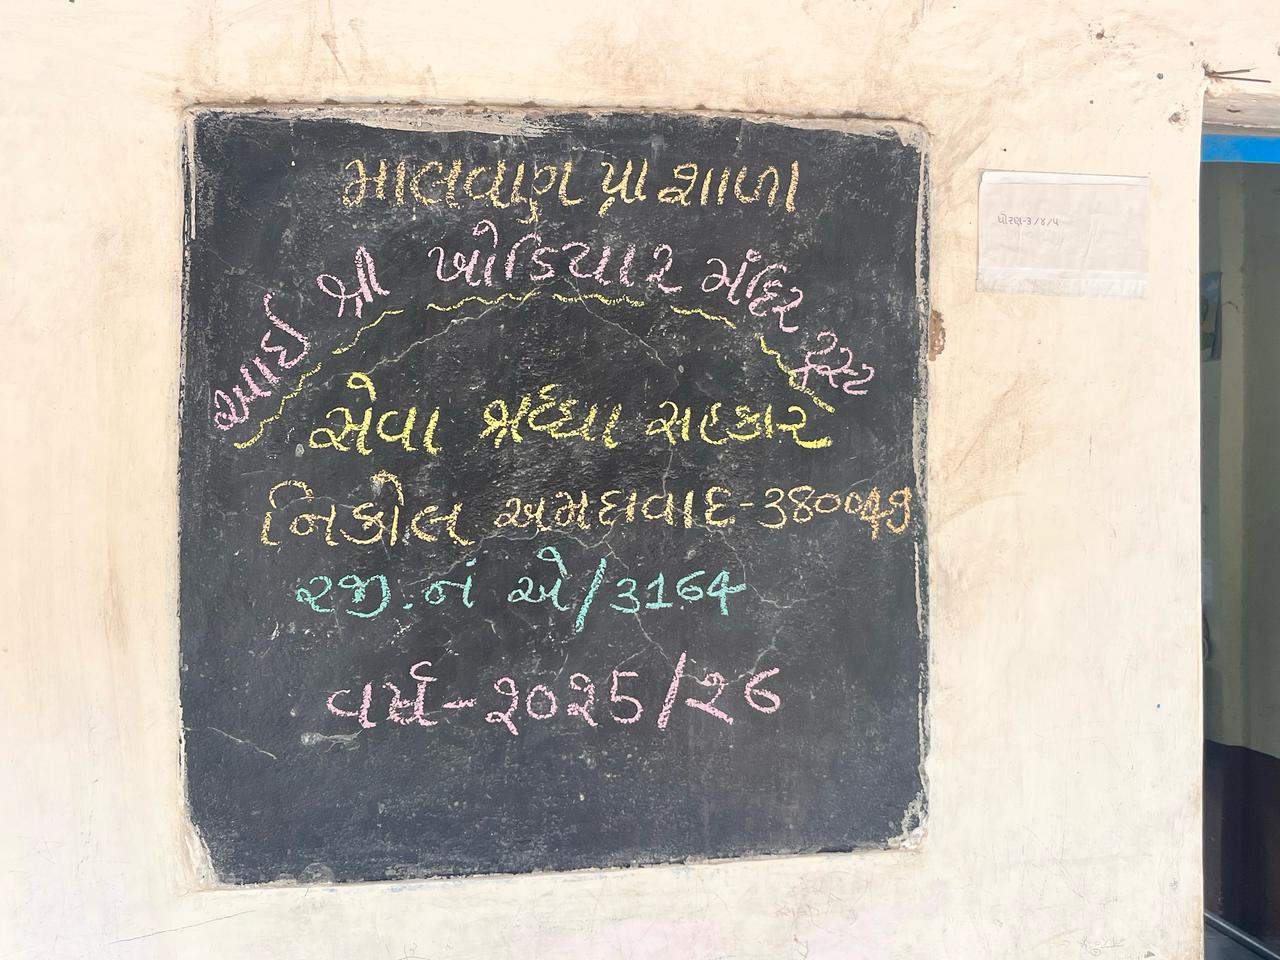 માલવાણ પ્રા શાળા
આઈ શ્રી ખોડિયાર મંદિર ટ્રસ્ટ
સેવા શ્રધ્ધા સહકાર
નિકોલ અમદાવાદ-380049
રજી.નં એ/3164
વર્ષ-૨૦૨5/૨6
ધોરણ-૩/૪/૫